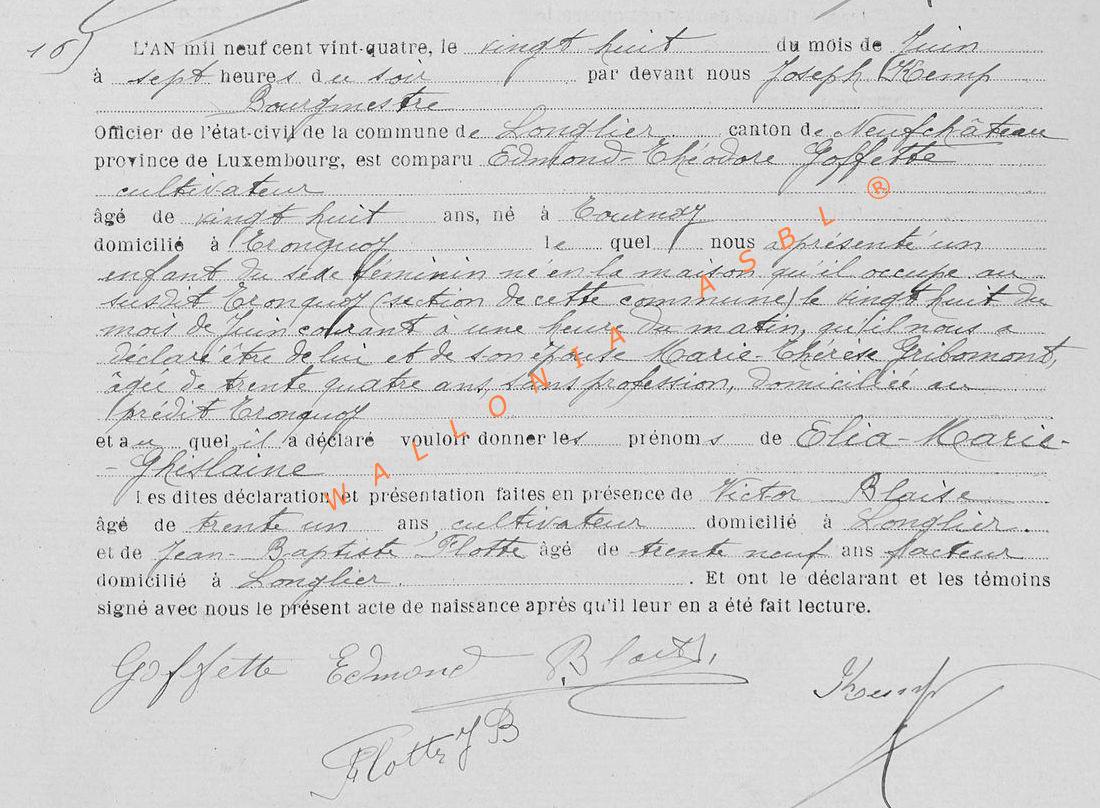 16)
L'AN mil neuf cent vint-quatre, le vingt huit du mois de Juin
à sept heures du soir par devant nous Joseph Kemp
Bourgmestre
Officier de l'état-civil de la commune de Longlier canton de Neufchâteau
province de Luxembourg, est comparu Edmond-Théodore Goffette
cultivateur
âgé de vingt huit ans, né à Tournay
domicilié à Tronquoy le quel nous a présenté un
enfant du sexe féminin né en la maison qu'il occupe au
susdit Tronquoy (section de cette commune) le vingt huit du
mois de Juin courant à une heure du matin, qu'il nous a
déclaré être de lui et de son épouse Marie-Thérèse Gribomont,
âgée de trente quatre ans, sans profession, domiciliée au
prédit Tronquoy
et au quel il a déclaré vouloir donner les prénoms de Elia-Marie-
-Ghislaine
Les dites déclaration et présentation faites en présence de Victor Blaise
âgé de trente un ans cultivateur domicilié à Longlier.
et de Jean-Baptiste Flotte âgé de trente neuf ans facteur
domicilié à Longlier. . Et ont le déclarant et les témoins
signé avec nous le présent acte de naissance après qu'il leur en a été fait lecture.
Goffette Edmond Kemp
Flotte J B
WALLONIA ASBL ®